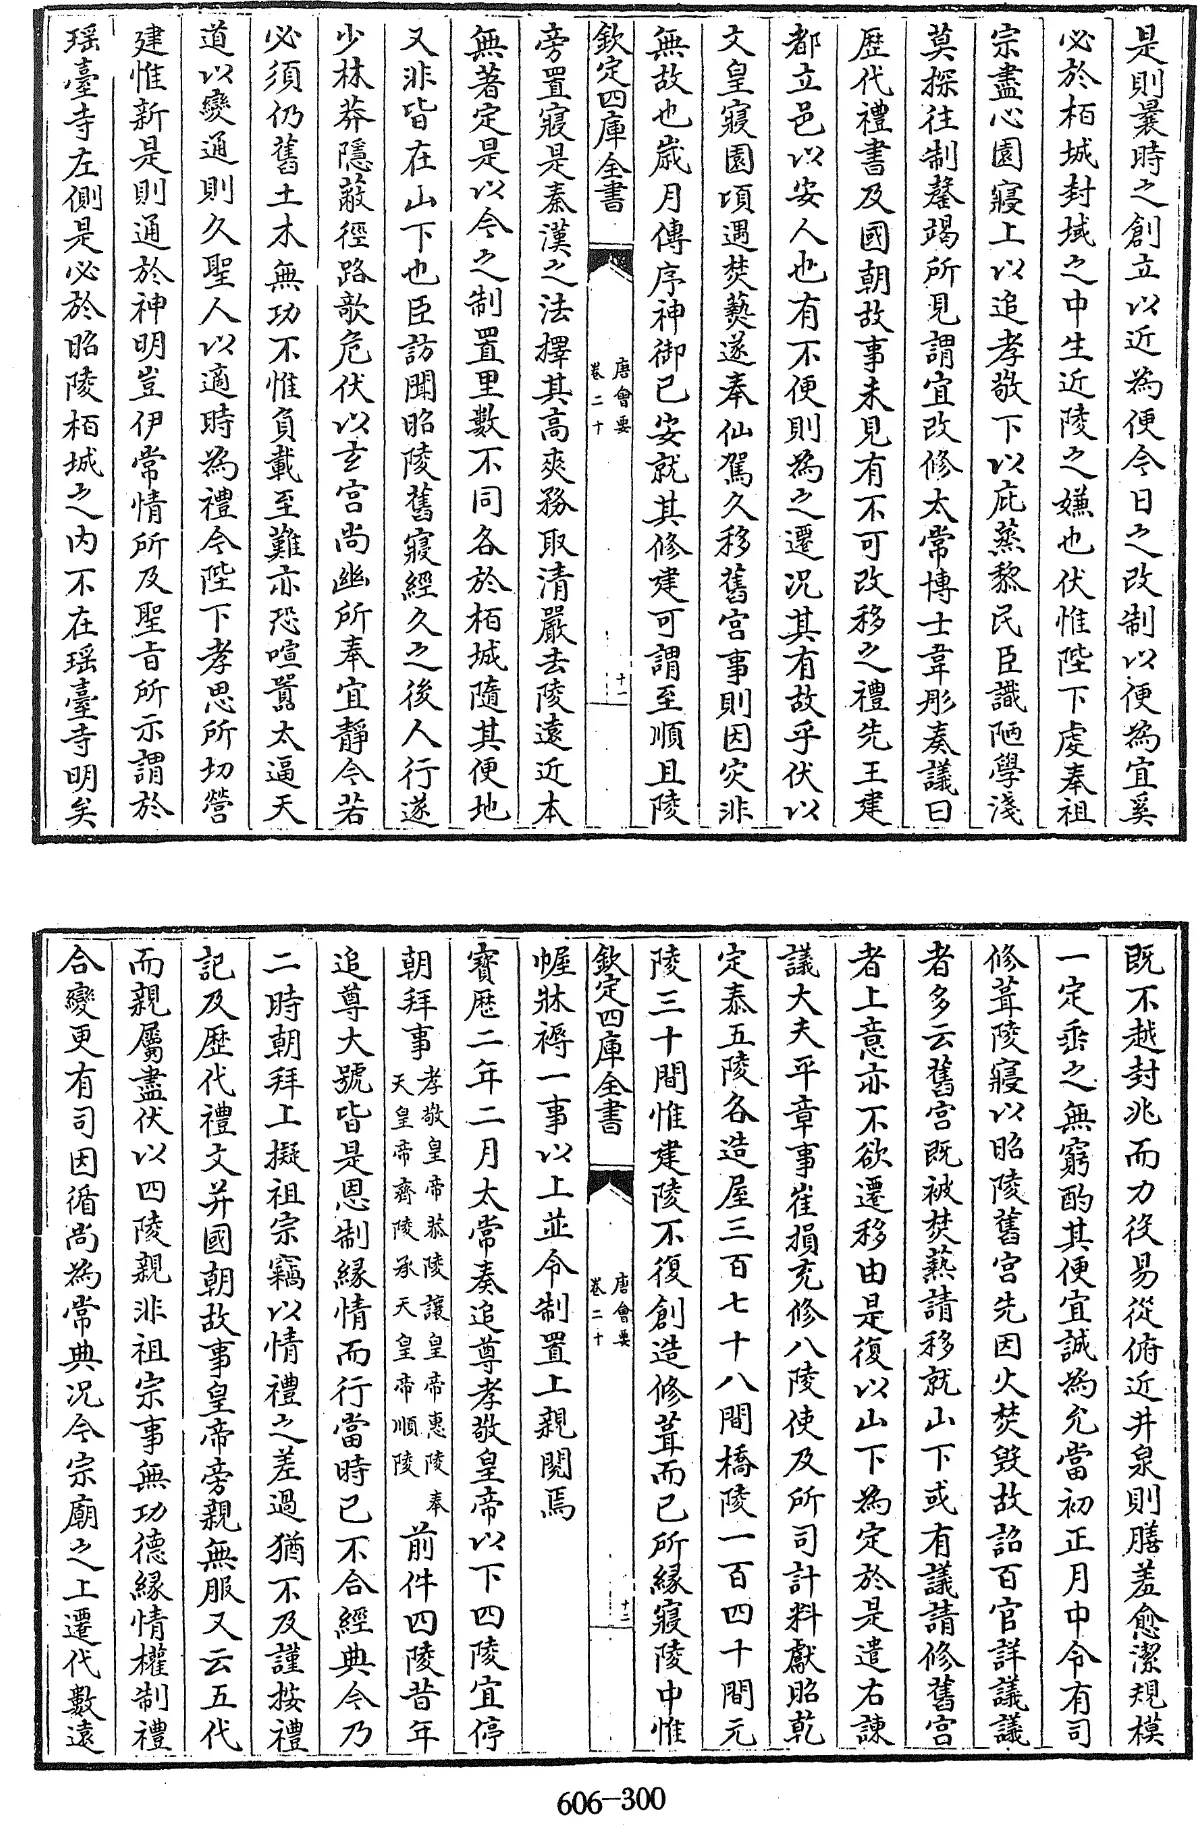 是則曩時之創立以近為便今日之改制以便為宜奚
必於栢城封域之中生近陵之嫌也伏惟陛下虔奉祖
宗盡心園寢上以追孝敬下以庇蒸黎民臣識陋學淺
莫探往制罄竭所見謂宜改修太常博士韋彤奏議曰
歴代禮書及國朝故事未見有不可改移之禮先王建
都立邑以安人也有不便則為之遷况其有故乎伏以
文皇寢園頃遇焚爇遂奉仙駕久移舊宫事則因灾非
無故也歳月傳序神御已安就其修建可謂至順且陵
欽定四庫全書
唐會要
卷二十
十一
旁置寢是秦漢之法擇其高爽務取清嚴去陵遠近本
無著定是以今之制置里數不同各於栢城隨其便地
又非皆在山下也臣訪聞昭陵舊寢經久之後人行遂
少林莽隱蔽徑路欹危伏以玄宫尚幽所奉宜靜今若
必須仍舊土木無功不惟負載至難亦恐喧囂太逼天
道以變通則久聖人以適時為禮今陛下孝思所切營
建惟新是則通於神明豈伊常情所及聖旨所示謂於
瑶臺寺左側是必於昭陵栢城之内不在瑶臺寺明矣
既不越封兆而力役易從俯近井泉則膳羞愈潔規模
一定垂之無窮酌其便宜誠為允當初正月中令有司
修葺陵寢以昭陵舊宫先因火焚毀故詔百官詳議議
者多云舊宫既被焚爇請移就山下或有議請修舊宫
者上意亦不欲遷移由是復以山下為定於是遣右諫
議大夫平章事崔損充修八陵使及所司計料獻昭乾
定泰五陵各造屋三百七十八間橋陵一百四十間元
陵三十間惟建陵不復創造修葺而已所縁寢陵中惟
欽定四庫全書
唐會要
卷二十
十二
幄牀褥一事以上並令制置上親閲焉
寳歴二年二月太常奏追尊孝敬皇帝以下四陵宜停
朝拜事孝敬皇帝恭陵讓皇帝惠陵奉天皇帝齊陵承天皇帝順陵前件四陵昔年
追尊大號皆是恩制縁情而行當時已不合經典今乃
二時朝拜上擬祖宗竊以情禮之差過猶不及謹按禮
記及歴代禮文并國朝故事皇帝旁親無服又云五代
而親屬盡伏以四陵親非祖宗事無功德縁情權制禮
合變更有司因循尚為常典况今宗廟之上遷代數遠
606-300